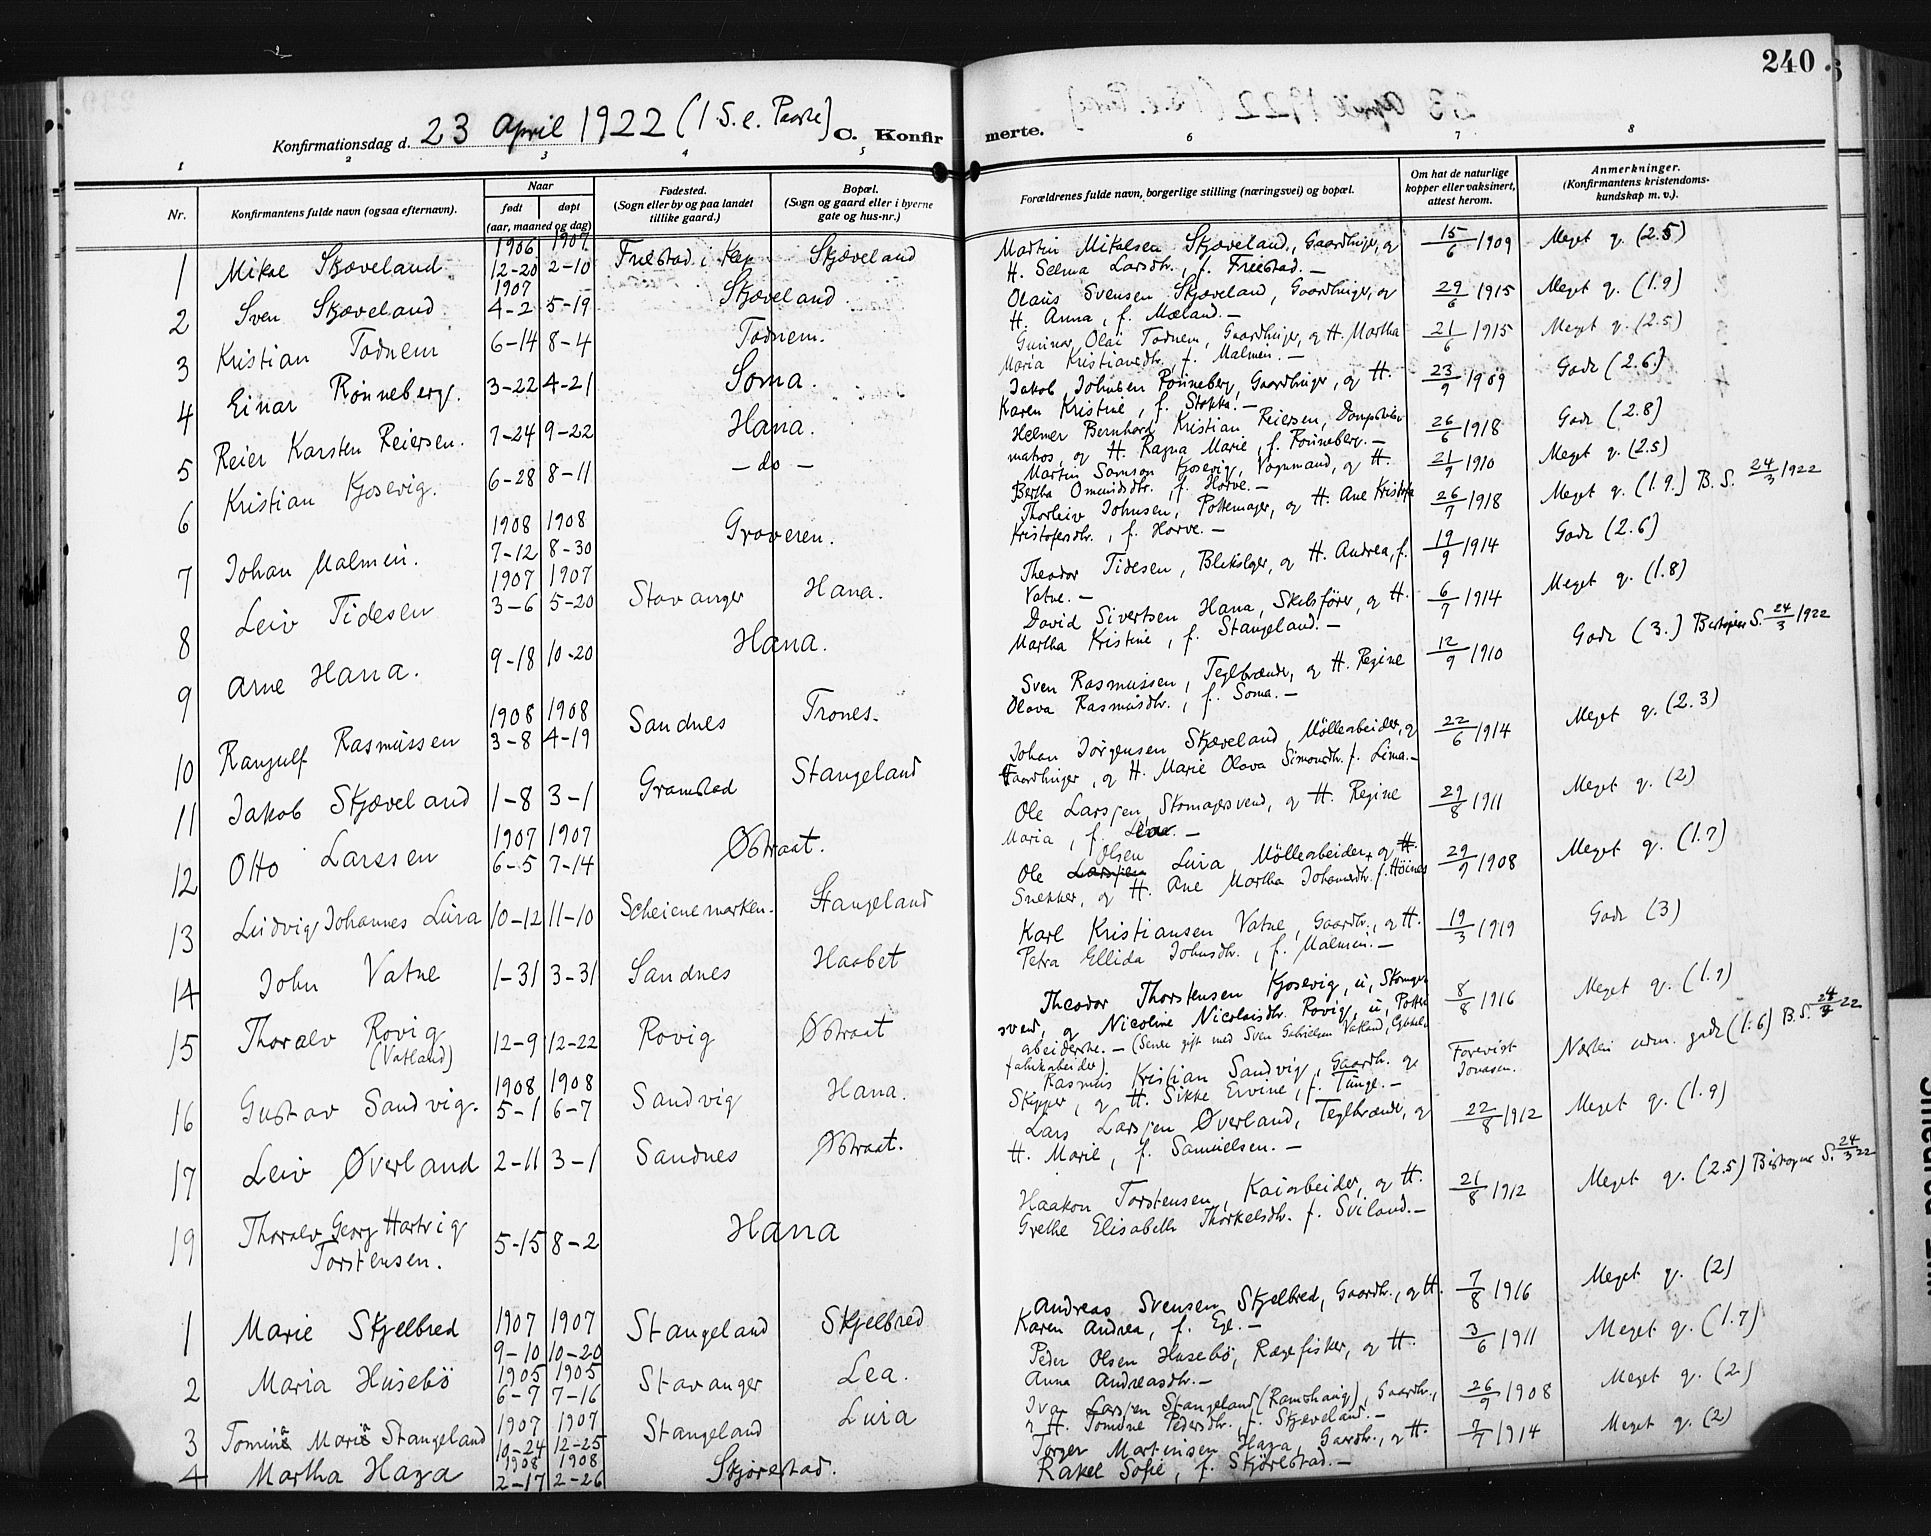 240
Konfirmationsdag d. 23 April 1922 (1 S. e. Paaske) C. Konfirmerte.
1 2 3 4 5 6 7 8
Nr. Konfirmantens fulde navn (ogsaa efternavn). Naar født døpt (aar, maaned og dag) Fødested. (Sogn eller by og paa landet tillike gaard.) Bopæl. (Sogn og gaard eller i byerne gate og hus-nr.) Forældrenes fulde navn, borgerlige stilling (næringsvei) og bopæl. Om hat de naturlige kopper eller vaksinert, attest herom. Anmerkninger. (Konfirmantens kristendoms-kundskap m. v.).
1 Mikal Skjæveland 1906 12-20 1907 2-10 Friestad i Klep Skjæveland Martin Mikalsen Skjæveland, Gaardbruger, og H. Selma Larsdtr., f. Friestad. — 15/6 1909 Meget g. (2.5)
2 Sven Skjæveland 1907 4-2 5-19 Skjæveland. Olaus Svensen Skjæveland, Gaardbruger, og H. Anna, f. Mæland. — 29/6 1915 Meget g. (1.9)
3 Kristian Todnem 6-14 8-4 Todnem. Gunnar Olai Todnem, Gaardbruger, og H. Martha Maria Kristiansdtr. f. Malmen. — 21/6 1915 Meget g. (2.5)
4 Einar Rønneberg. 3-22 4-21 Soma. Jakob Johnsen Rønneberg, Gaardbruger, og H. Karen Kristine, f. Stokka. — 23/9 1909 Godt (2.6)
5 Reier Karsten Reiersen. 7-24 9-22 Hana. Helmer Bernhard Kristian Reiersen, matros, og H. Ragna Marie, f. Rønneberg. — 26/6 1918 Godt (2.8)
6 Kristian Kjosevig. 6-28 8-11 — do — Martin Samson Kjosevig, Vognmand, og H. Bertha Omundsdtr., f. Horve. — 21/9 1910 Meget g. (2.5)
7 Johan Malmin. 1908 7-12 1908 8-30 Graveren. Thorleiv Johnsen, Pottemager, og H. Ane Kristofa Kristofersdtr., f. Horve. — 26/7 1918 Meget g. (1.9.) B. S. 24/3 1922
8 Leiv Tidesen 1907 3-6 1907 5-20 Stavanger Hana. Theodor Tidesen, Blikslager, og H. Andrea, f. Vatne. — 19/9 1914 Godt (2.6)
9 Arne Hana. 9-18 10-20 Hana. David Sivertsen Hana, Skibsfører, og H. Martha Kristine, f. Stangeland. — 6/7 1914 Meget g. (1.8)
10 Rangulf Rasmussen 1908 3-8 1908 4-19 Sandnes Trones. Sven Rasmussen, Teglbrænder, og H. Regine Olava Rasmusdtr., f. Soma. — 12/9 1910 Godt (3.) S. 24/3 1922
11 Jakob Skjæveland 1-8 3-1 Gramstad Stangeland Johan Jørgensen Skjæveland, Møllearbeider, og Gaardbruger, og H. Marie Olava Simonsdtr. f. Lima. — 22/6 1914 Meget g. (2.3)
12 Otto Larssen 1907 6-5 1907 7-14 Østraat. Ole Larsen, Skomagersvend, og H. Regine Maria, f. — 29/8 1911 Meget g. (2)
13 Ludvig Johannes Lura 10-12 11-10 Scheienemarken. Stangeland Ole Olsen Lura Møllearbeider, og H. Snekker, og H. Ane Martha Johannesdtr. f. Høines 29/9 1908 Meget g. (1.7)
14 John Vatne 1-31 3-31 Sandnes Haabet Karl Kristiansen Vatne, Gaardbr., og H. Petra Ellida Johnsdtr., f. Malmin. — 19/3 1919 Godt (3)
15 Thoralv Rovig (Vatland) 12-9 12-22 Rovig Østraat Theodor Thorstensen Kjosevig, u, Skomagersvend, og Nicoline Nicolaisdtr. Rovig, u, Pottearbeiderske. — (Senere gift med Sven Gabrielsen Vatland, fabrikarbeider). 8/8 1916 Meget g. (1.9)
16 Gustav Sandvig. 1908 5-1 1908 6-7 Sandvig Hana. Rasmus Kristian Sandvig, Gaardbr. og Skipper, og H. Sikke Ervine, f. Tunge. — Forevist Jonassen. Næsten udm. godt (1.6) B. S. 24/3 22
17 Leiv Øverland 2-11 3-1 Sandnes Østraat. Lars Larsen Øverland, Teglbrænder, og H. Marie, f. Samuelsen. — 22/8 1912 Meget g. (1.9)
19 Thoralv Georg Hartvig Torstensen. 5-15 8-2 Hana Haakon Torstensen, Kaiarbeider, og H. Grethe Elisabeth Thorkelsdtr. f. Sviland. — 21/8 1912 Meget g. (2.5) S. 24/3 22
1 Marie Skjelbred 1907 9-10 1907 10-20 Stangeland Skjelbred Andreas Svensen Skjelbred, Gaardbr., og H. Karen Andrea, f. Ege. — 7/8 1916 Meget g. (2)
2 Maria Husebø 1905 6-7 1905 7-16 Stavanger Lea. Peder Olsen Husebø, Rægefisker, og H. Anna Andreasdtr. — 3/6 1911 Meget g. (1.7)
3 Tomina Maria Stangeland 1907 10-24 1907 12-25 Stangeland Lura Ivar Larsen Stangeland (Ramshaug), Gaardbr., og H. Tomine Pedersdtr. f. Skjæveland. — 26/9 1908 Meget g. (2)
4 Martha Haga 1908 2-17 1908 2-26 Skjørestad. Torger Martinsen Haga, Gaardbr., og H. Rakel Sofie, f. Skjørestad. — 7/7 1914 Meget g. (2)